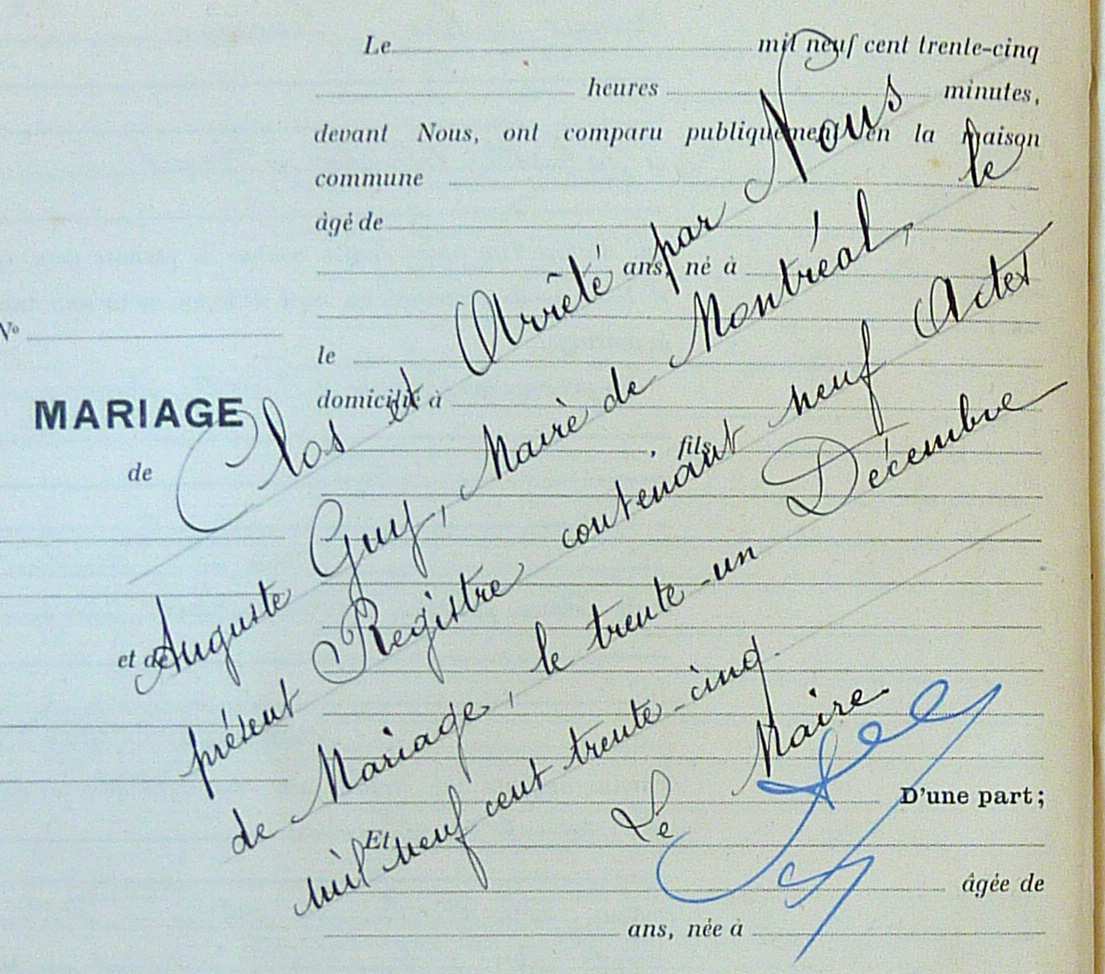 Le mil neuf cent trente-cinq
heures minutes,
devant Nous, ont comparu publiquement en la maison
commune
âgé de
ans, né à
N°
le
domicilié à
MARIAGE
, fils
de
et de
D'une part;
Et
âgée de
ans, née à
Clos et Arrêté par Nous
Auguste Guy, Maire de Montréal, le
présent Registre contenant neuf Actes
de Mariage, le trente-un Décembre
mil neuf cent trente-cinq.
Le Maire